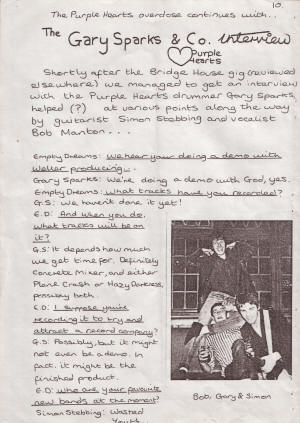 10.
The Purple Hearts overdose continues with...
The Gary Sparks & Co. Interview
Purple Hearts
Shortly after the Bridge House gig (reviewed
elsewhere) we managed to get an interview
with the Purple Hearts drummer Gary Sparks,
helped (?) at various points along the way
by guitarist Simon Stebbing and vocalist
Bob Manton...
Empty Dreams: We hear your doing a demo with
Weller producing...
Gary Sparks: We're doing a demo with God, yes.
Empty Dreams: What tracks have you recorded?
G.S: We haven't done it yet!
E.D: And when you do,
what tracks will be on
it?
G.S: It depends how much
we get time for. Definitely
Concrete Mixer, and either
Plane Crash or Hazy Darkness,
possibly both.
E.D: I suppose you're
recording it to try and
attract a record company?
G.S: Possibly, but it might
not even be a demo. In
fact, it might be the
finished product.
E.D: Who are your favourite
new bands at the moment?
Simon Stebbing: Wasted
Youth
Bob, Gary & Simon